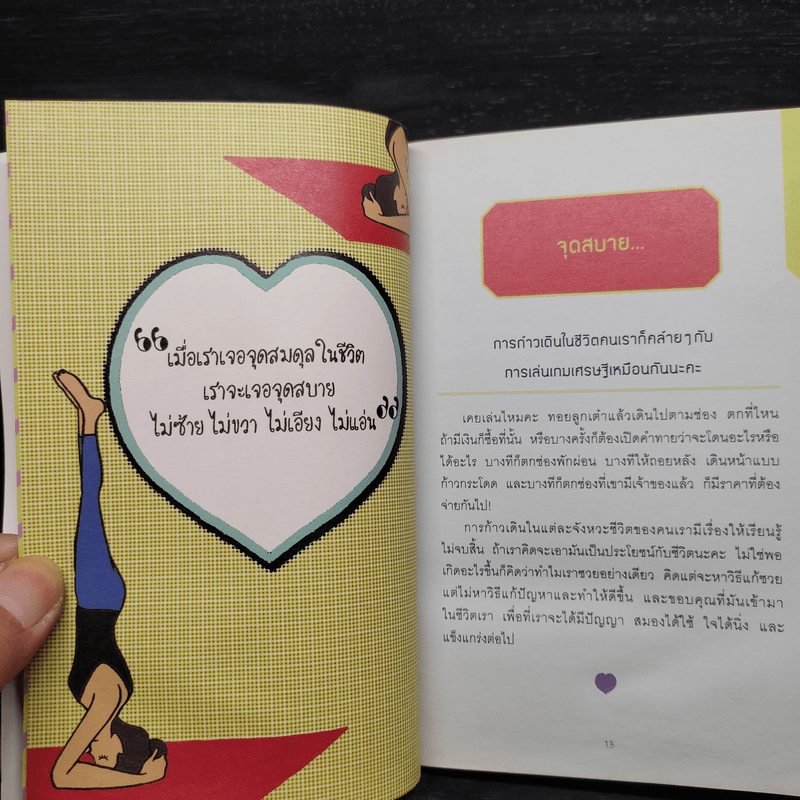 “เมื่อเราเจอจุดสมดุลในชีวิต
เราจะเจอจุดสบาย
ไม่ซ้าย ไม่ขวา ไม่เอียง ไม่แอ่น”
จุดสบาย...
การก้าวเดินในชีวิตคนเราก็คล้ายๆ กับ
การเล่นเกมเศรษฐีเหมือนกันนะคะ
เคยเล่นไหมคะ ทอยลูกเต๋าแล้วเดินไปตามช่อง ตกที่ไหน
ถ้ามีเงินก็ซื้อที่นั้น หรือบางครั้งก็ต้องเปิดคำทายว่าจะโดนอะไรหรือ
ได้อะไร บางทีก็ตกช่องพักผ่อน บางทีให้ถอยหลัง เดินหน้าแบบ
ก้าวกระโดด และบางทีก็ตกช่องที่เขามีเจ้าของแล้ว ก็มีราคาที่ต้อง
จ่ายกันไป!
การก้าวเดินในแต่ละจังหวะชีวิตของคนเรามีเรื่องให้เรียนรู้
ไม่จบสิ้น ถ้าเราคิดจะเอามันเป็นประโยชน์กับชีวิตนะคะ ไม่ใช่พอ
เกิดอะไรขึ้นก็คิดว่าทำไมเราซวยอย่างเดียว คิดแต่จะหาวิธีแก้ซวย
แต่ไม่หาวิธีแก้ปัญหาและทำให้ดีขึ้น และขอบคุณที่มันเข้ามา
ในชีวิตเรา เพื่อที่เราจะได้มีปัญญา สมองได้ใช้ ใจได้นิ่ง และ
แข็งแกร่งต่อไป
13